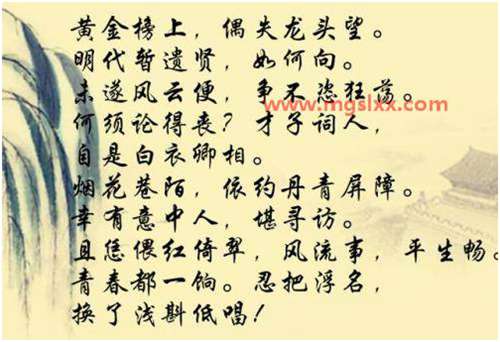 黄金榜上，偶失龙头望。
明代暂遗贤，如何向。
未遂风云便，争不恣狂荡。
www.mgslxx.com
何须论得丧？才子词人，
自是白衣卿相。
烟花巷陌，依约丹青屏障。
幸有意中人，堪寻访。
且恁偎红倚翠，风流事，平生畅。
青春都一饷。忍把浮名，
换了浅斟低唱！